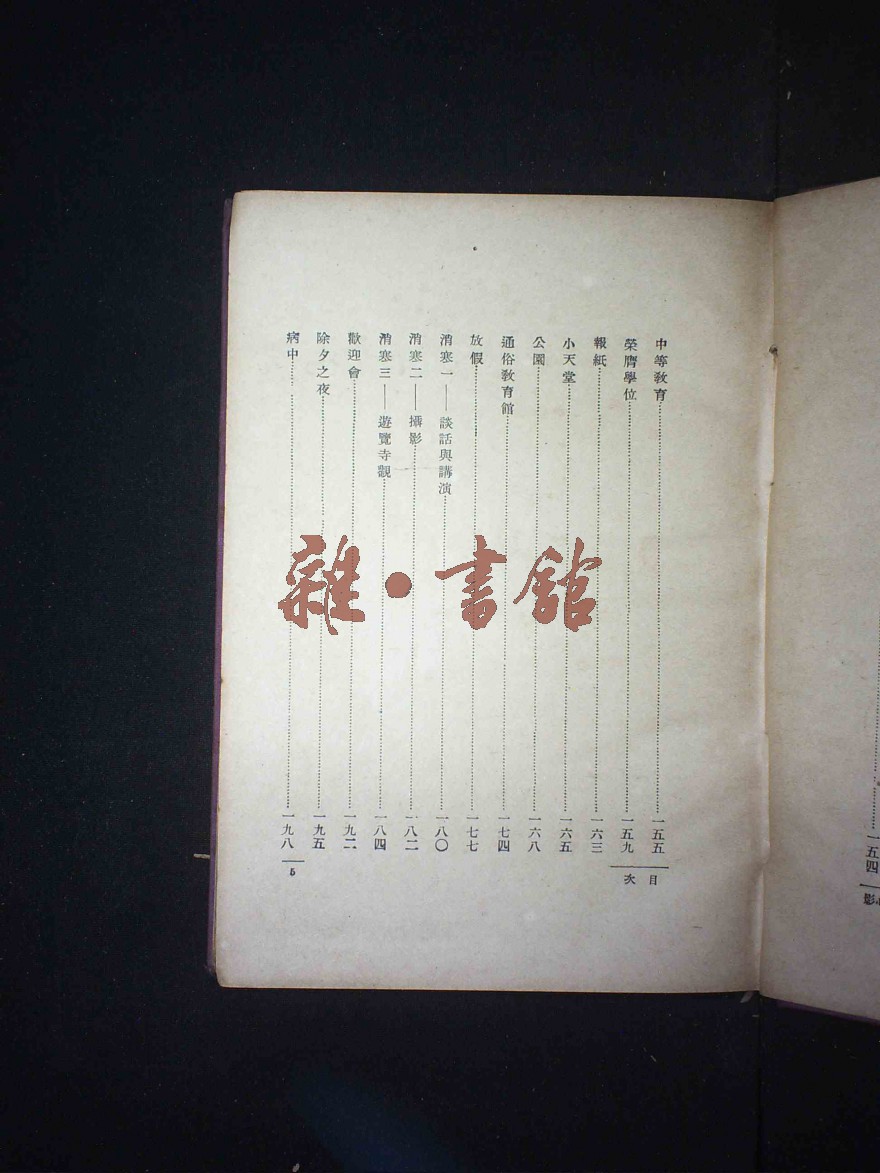 中等敎育……一五五
榮膺學位……一五九
報紙……一六三
小天堂……一六五
公園……一六八
通俗敎育館……一七四
放假……一七七
消寒一——談話與講演……一八〇
消寒二——攝影……一八二
消寒三——遊覽寺觀……一八四
歡迎會……一九二
除夕之夜……一九五
病中……一九八
目次
5
雜·書館
一五四
影